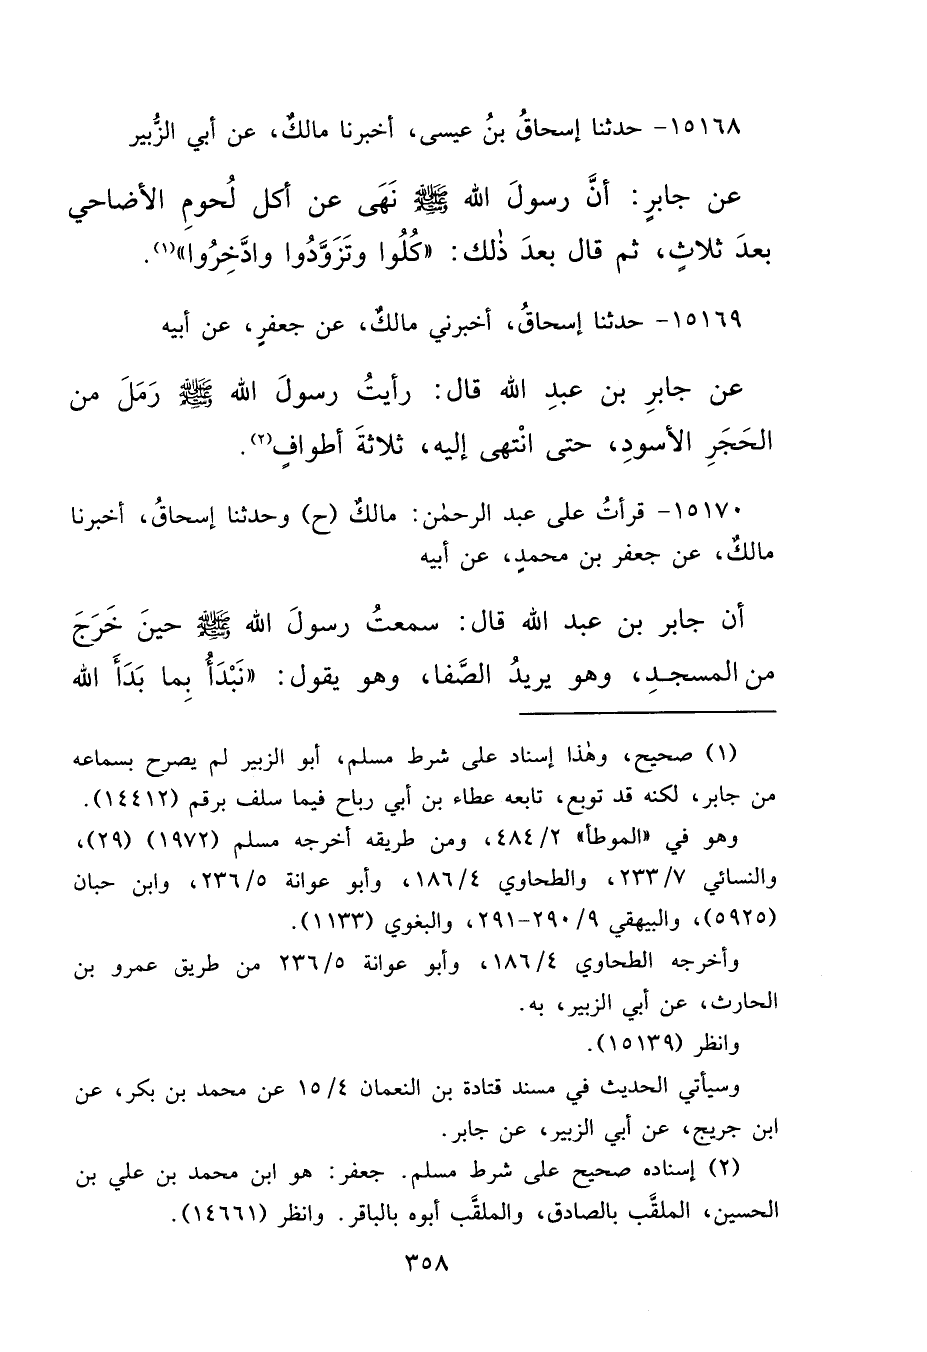 ١٥١٦٨- حدثنا إسحاقُ بنُ عيسى، أخبرنا مالكٌ، عن أبي الزُّبير
عن جابرٍ: أنَّ رسولَ الله ﷺ نَهَى عن أكل لُحومِ الأضاحي
بعدَ ثلاثٍ، ثم قال بعدَ ذٰلك: «كُلُوا وتَزَوَّدُوا وادَّخِرُوا»(١).
١٥١٦٩- حدثنا إسحاقُ، أخبرني مالكٌ، عن جعفرٍ، عن أبيه
عن جابرِ بن عبدِ الله قال: رأيتُ رسولَ الله ﷺ رَمَلَ من
الحَجَرِ الأسودِ، حتى انْتهى إليه، ثلاثةَ أطوافٍ(٢).
١٥١٧٠- قرأتُ على عبد الرحمٰن: مالكٌ (ح) وحدثنا إسحاقُ، أخبرنا
مالكٌ، عن جعفر بن محمدٍ، عن أبيه
أن جابر بن عبد الله قال: سمعتُ رسولَ الله ﷺ حينَ خَرَجَ
من المسجدِ، وهو يريدُ الصَّفا، وهو يقول: «نَبْدَأُ بِما بَدَأَ الله
(١) صحيح، وهٰذا إسناد على شرط مسلم، أبو الزبير لم يصرح بسماعه
من جابر، لكنه قد توبع، تابعه عطاء بن أبي رباح فيما سلف برقم (١٤٤١٢).
وهو في «الموطأ» ٤٨٤/٢، ومن طريقه أخرجه مسلم (١٩٧٢) (٢٩)،
والنسائي ٢٣٣/٧، والطحاوي ١٨٦/٤، وأبو عوانة ٢٣٦/٥، وابن حبان
(٥٩٢٥)، والبيهقي ٢٩٠/٩-٢٩١، والبغوي (١١٣٣).
وأخرجه الطحاوي ١٨٦/٤، وأبو عوانة ٢٣٦/٥ من طريق عمرو بن
الحارث، عن أبي الزبير، به.
وانظر (١٥١٣٩).
وسيأتي الحديث في مسند قتادة بن النعمان ١٥/٤ عن محمد بن بكر، عن
ابن جريج، عن أبي الزبير، عن جابر.
(٢) إسناده صحيح على شرط مسلم. جعفر: هو ابن محمد بن علي بن
الحسين، الملقَّب بالصادق، والملقَّب أبوه بالباقر. وانظر (١٤٦٦١).
٣٥٨